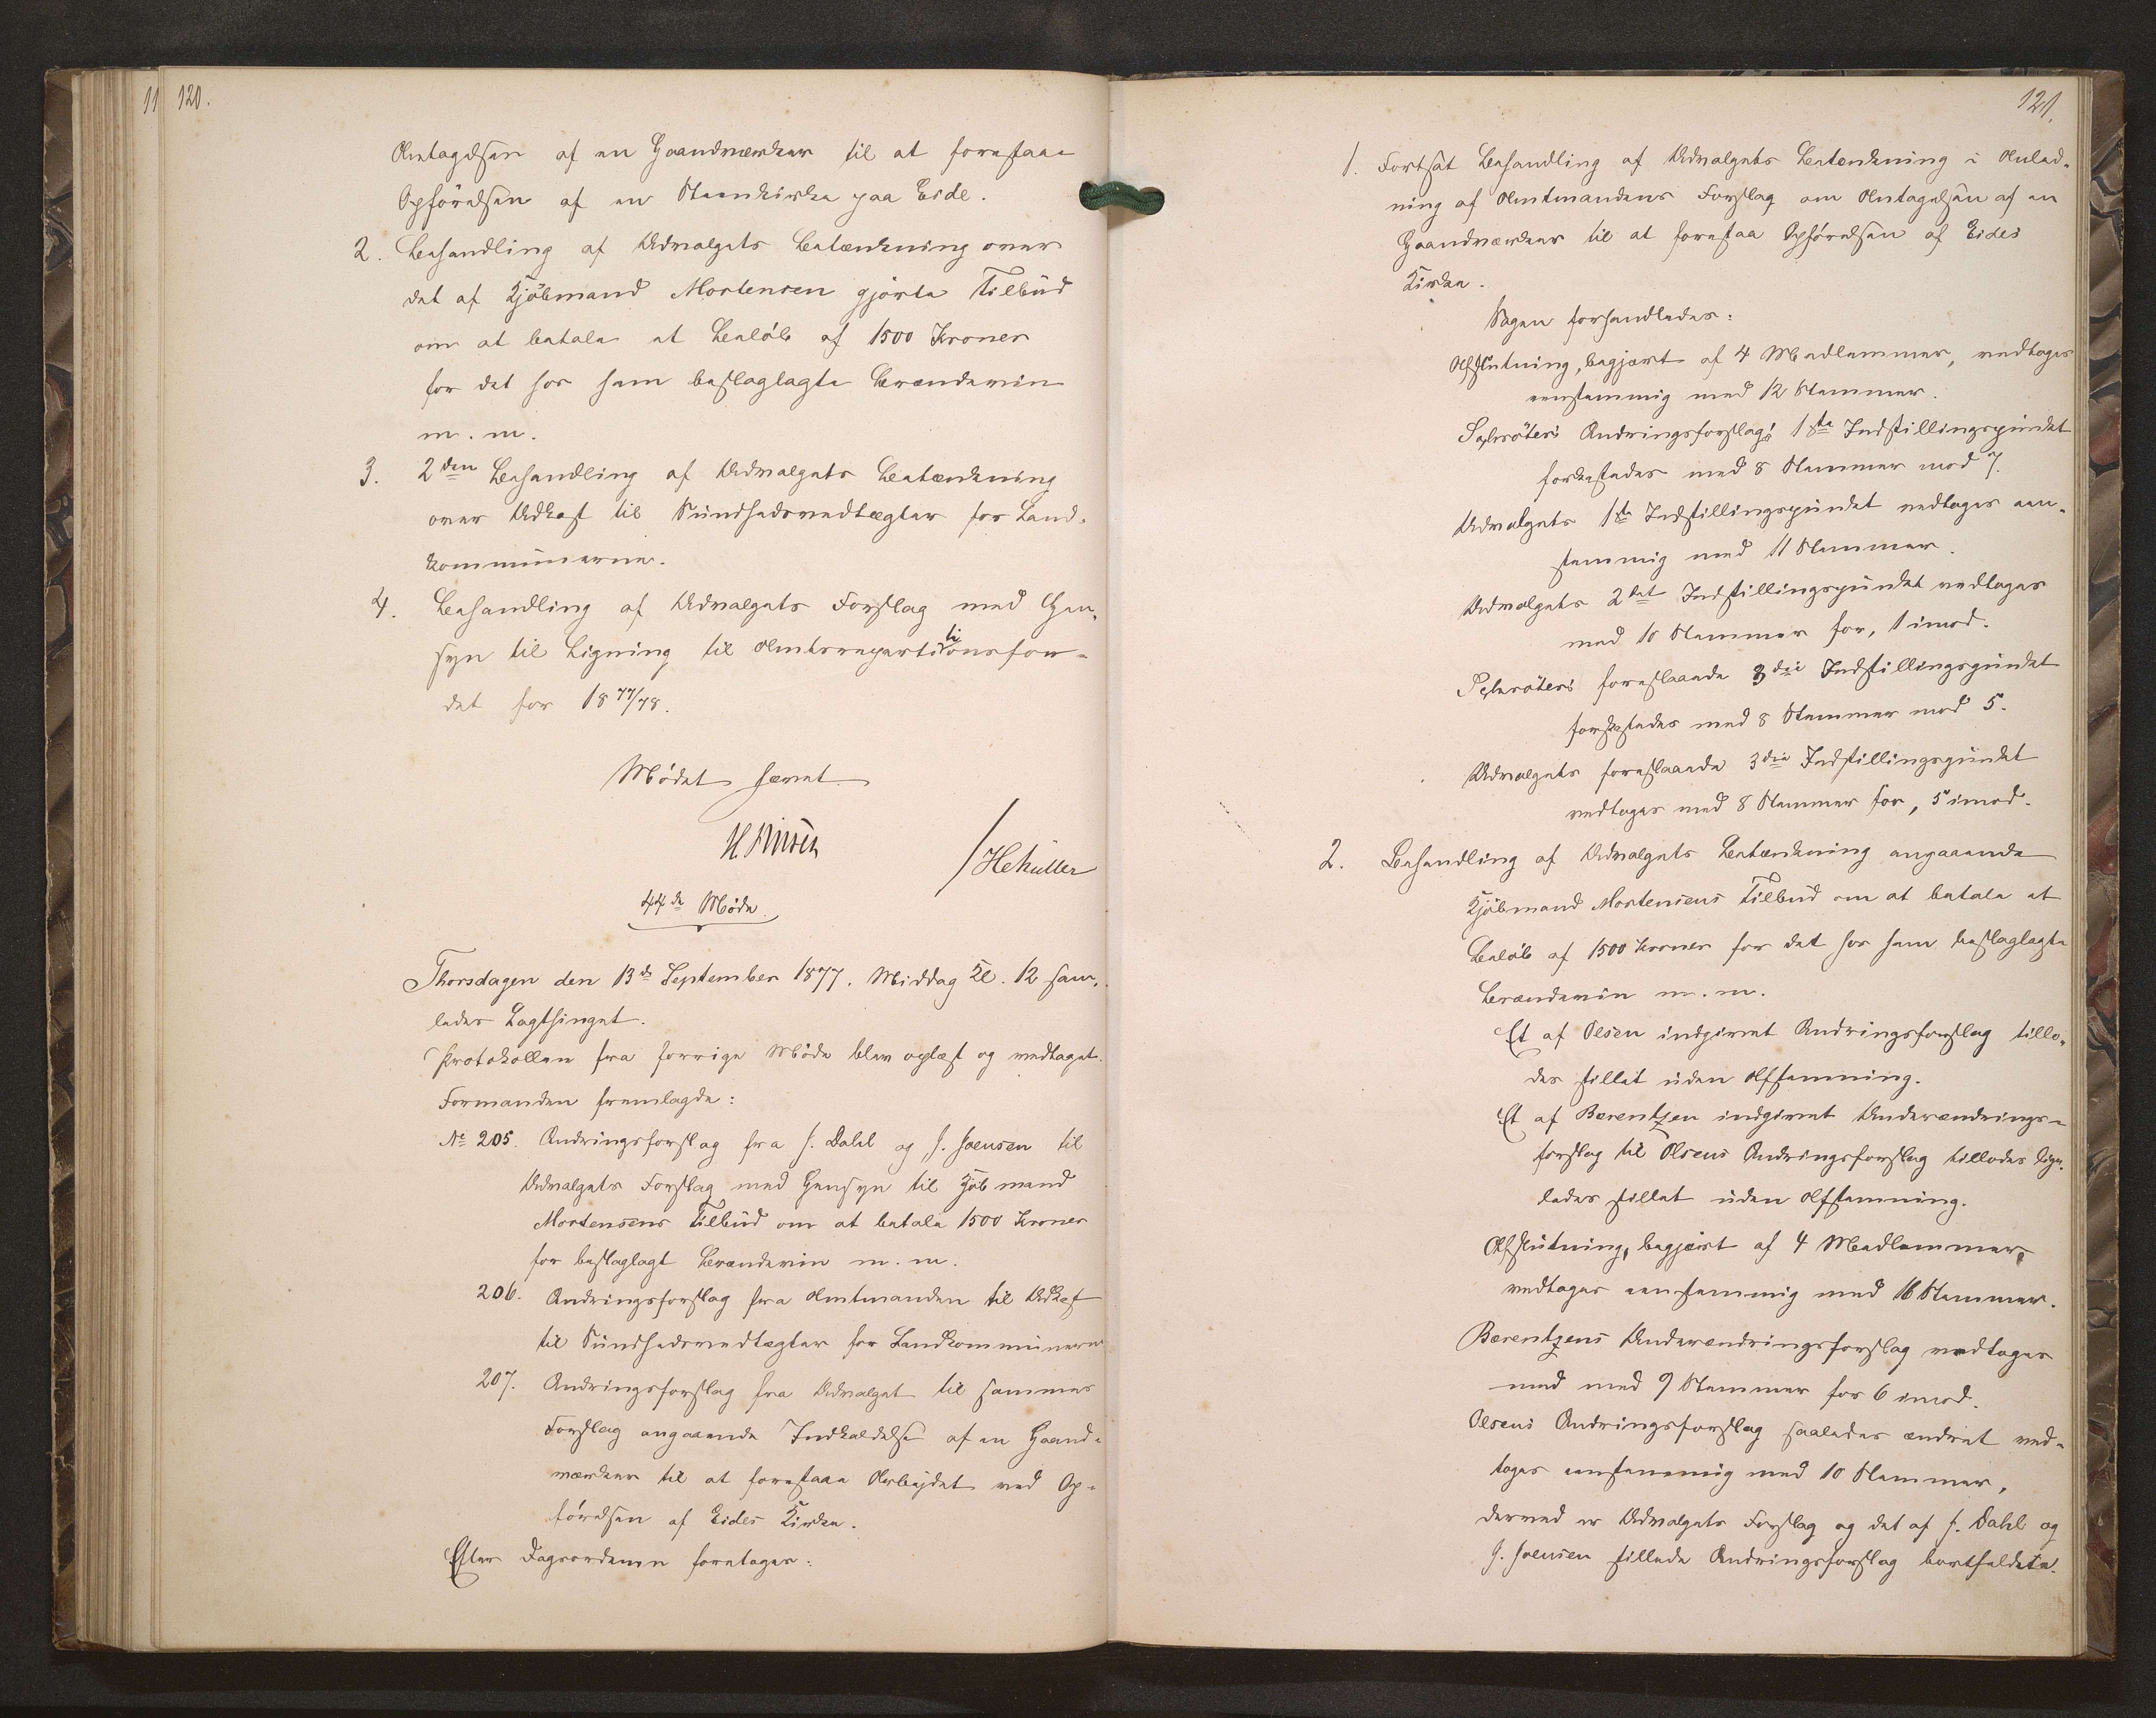 120.
Antagelsen af en Haandværker til at forestaae
Opførelsen af en Steenkirke paa Eide.
2. Behandling af Udvalgets Betænkning over
det af Kjøbmand Mortensen gjorte Tilbud
om at betale et Beløb af 1500 Kroner
for det hos ham beslaglagte Brændeviin
m. m.
3. 2den Behandling af Udvalgets Betænkning
over Udkast til Sundhedsvedtægter for Land-
kommunerne.
4. Behandling af Udvalgets Forslag med Hen-
syn til Ligning til Amtsrepartitionsfon-
det for 1877/78.
Mødet hævet
/HCMüller
44de Møde
Thorsdagen den 13de September 1877. Middag Kl. 12 sam-
ledes Lagthinget.
Protokollen fra forrige Møde blev oplæst og vedtaget.
Formanden fremlagde:
No 205. Ændringsforslag fra J. Dahl og J. Joensen til
Udvalgets Forslag med Hensyn til Kjøbmand
Mortensens Tilbud om at betale 1500 Kroner
for beslaglagt Brændeviin m. m.
206. Ændringsforslag fra Amtmanden til Udkast
til Sundhedsvedtægter for Landkommunerne
207. Ændringsforslag fra Udvalget til sammes
Forslag angaaende Indkaldelse af en Haand-
værker til at forestaae Arbejdet ved Op-
førelsen af Eides Kirke.
Efter Dagsordenen foretoges:
121.
1. Fortsat Behandling af Udvalgets Betænkning i Anled-
ning af Amtmandens Forslag om Antagelsen af en
Haandværker til at forestaa Opførelsen af Eides
Kirke.
Sagen forhandledes:
Afslutning, begjært af 4 Medlemmer, vedtoges
eenstemmig med 12 Stemmer.
Schrøters Ændringsforslags 1ste Indstillingspunkt
forkastedes med 8 Stemmer mod 7.
Udvalgets 1ste Indstillingspunkt vedtoges een-
stemmig med 11 Stemmer.
Udvalgets 2det Indstillingspunkt vedtoges
med 10 Stemmer for, 1 imod.
Schrøters foreslaaede 3die Indstillingspunkt
forkastedes med 8 Stemmer mod 5.
Udvalgets foreslaaede 3die Indstillingspunkt
vedtoges med 8 Stemmer for, 5 imod.
2. Behandling af Udvalgets Betænkning angaaende
Kjøbmand Mortensens Tilbud om at betale et
Beløb af 1500 Kroner for det hos ham beslaglagte
Brændeviin m. m.
Et af Olsen indgivet Ændringsforslag tillo-
des stillet uden Afstemning.
Et af Bærentzen indgivet Underændrings-
forslag til Olsens Ændringsforslag tillodes lige-
ledes stillet uden Afstemning.
Afslutning, begjært af 4 Medlemmer,
vedtoges eenstemmig med 16 Stemmer.
Bærentzens Underændringsforslag vedtoges
med med 9 Stemmer for 6 imod.
Olsens Ændringsforslag saaledes ændret ved-
toges eenstemmig med 10 Stemmer,
derved er Udvalgets Forslag og det af J. Dahl og
J. Joensen stillede Ændringsforslag bortfaldet.